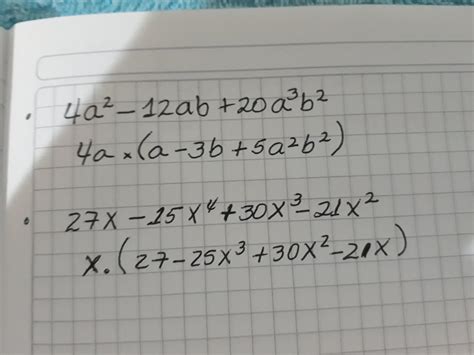 • 4a² - 12ab + 20a³b²
4a × (a - 3b + 5a²b²)
• 27x - 15x⁴ + 30x³ - 21x²
x. (27 - 25x³ + 30x² - 21x)